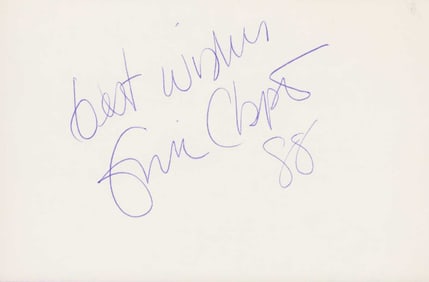 best wishes
Eric Clapton
88